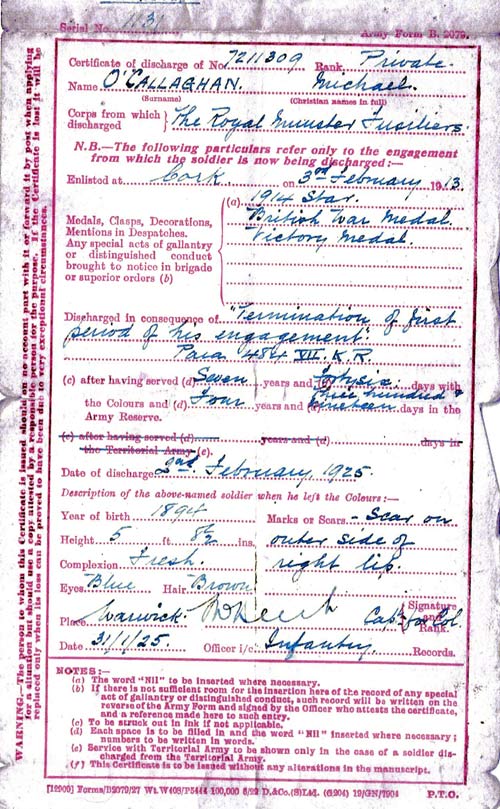 Serial No. 1131
Army Form B. 2079.
Certificate of discharge of No. 7211309 Rank Private.
Name O'CALLAGHAN. Michael.
(Surname) (Christian names in full)
Corps from which discharged } The Royal Munster Fusiliers.
N.B.—The following particulars refer only to the engagement
from which the soldier is now being discharged:—
Enlisted at Cork. on 3rd February 1913.
Medals, Clasps, Decorations,
Mentions in Despatches.
Any special acts of gallantry
or distinguished conduct
brought to notice in brigade
or superior orders (b)
(a) 1914 Star.
British War Medal.
Victory Medal.
Discharged in consequence of "Termination of first
period of his engagement".
Para 484 VII. K.R.
(c) after having served (d) Seven years and (d) forty six days with
the Colours and (d) Four years and (d) three hundred & nineteen days in the
Army Reserve.
(c) after having served (d) years and (d) days in
the Territorial Army (e).
Date of discharge 2nd February 1925.
Description of the above-named soldier when he left the Colours:—
Year of birth 1894 Marks or Scars - Scar on
Height 5 ft 8½ ins. outer side of
Complexion Fresh. right lip.
Eyes Blue Hair Brown
Place Warwick. Capt. for Col. Signature and Rank.
Date 31/1/25. Officer i/c Infantry Records.
NOTES:—
(a) The word "Nil" to be inserted where necessary.
(b) If there is not sufficient room for the insertion here of the record of any special
act of gallantry or distinguished conduct, such record will be written on the
reverse of the Army Form and signed by the Officer who attests the certificate,
and a reference made here to such entry.
(c) To be struck out in ink if not applicable.
(d) Each space is to be filled in and the word "Nil" inserted where necessary;
numbers to be written in words.
(e) Service with Territorial Army to be shown only in the case of a soldier dis-
charged from the Territorial Army.
(f) This Certificate is to be issued without any alterations in the manuscript.
[12909] Forms/B2079/27 Wt.W408/P5444 100,000 8/22 D.&Co.(S)Ld. (G204) 19/GN/1904 P.T.O.
WARNING.—The person to whom this Certificate is issued should on no account part with it or forward it by post when applying
for a situation but should use a copy attested by a responsible person for the purpose. If the Certificate is lost it will be
replaced only when its loss can be proved to have been due to very exceptional circumstances.